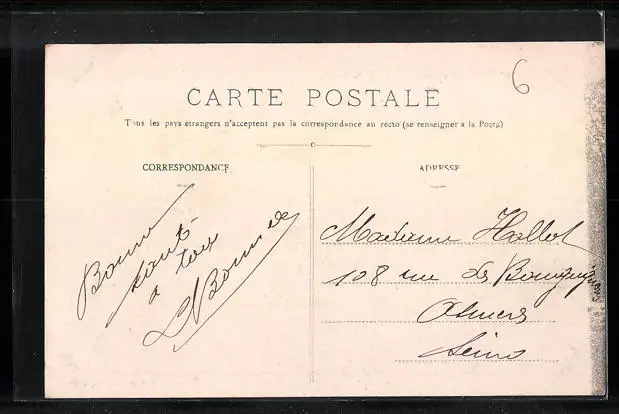 6
CARTE POSTALE
Tous les pays étrangers n'acceptent pas la correspondance au recto (se renseigner à la Poste)
CORRESPONDANCE
ADRESSE
Bonne
santé
à tous
Madame Hallot
108 rue des
Asnières
Seine